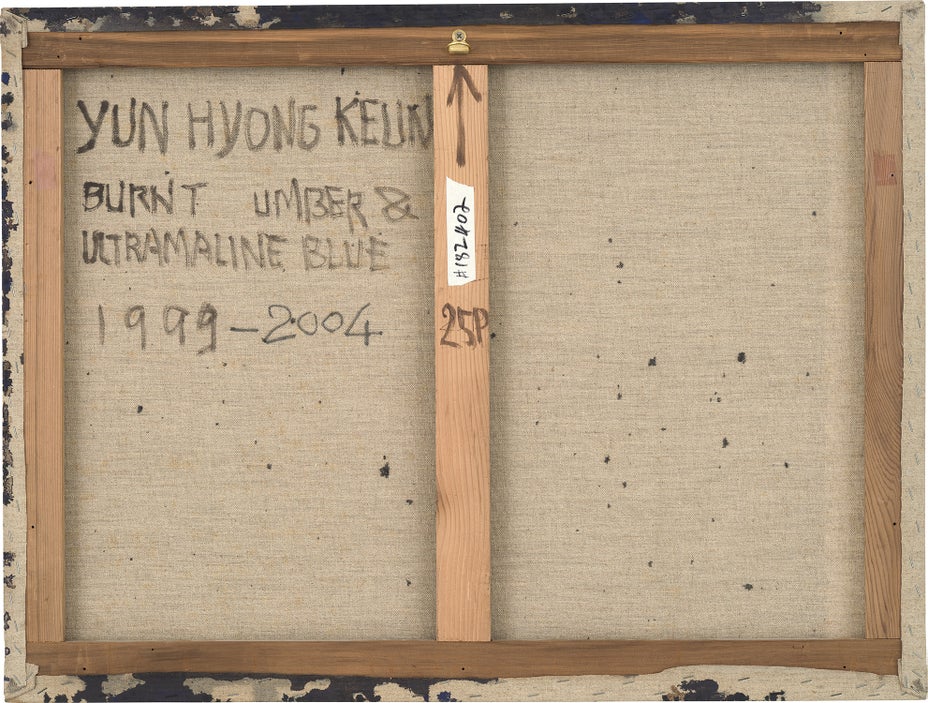 YUN HYONG KEUN
BURNT UMBER &
ULTRAMALINE BLUE
1999-2004
#182402
25P